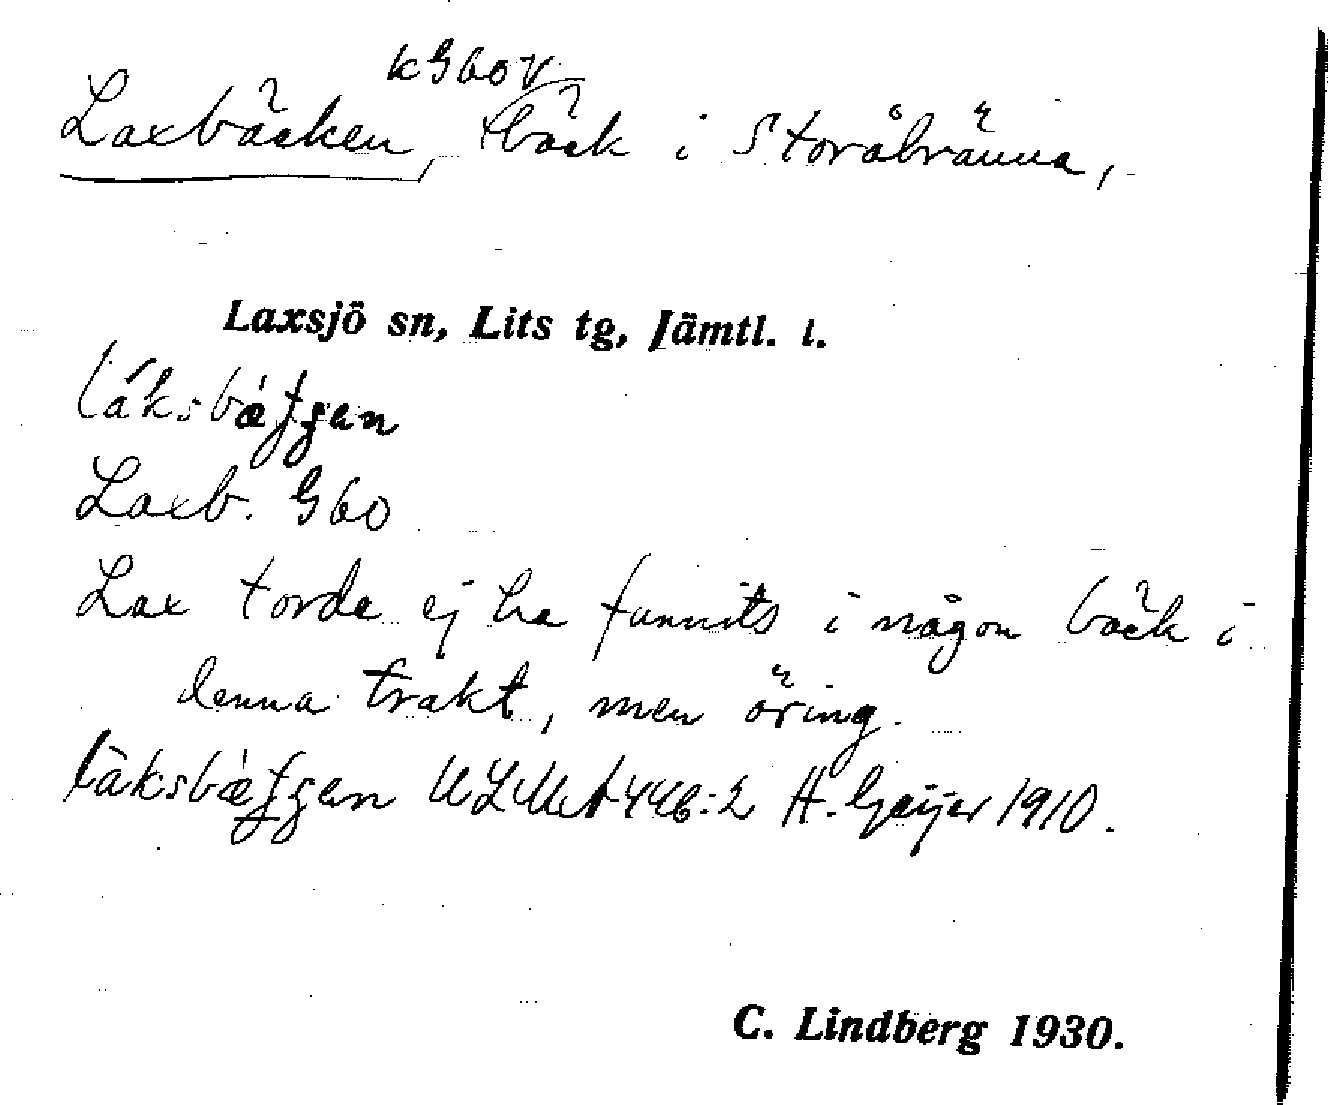 kG60V
Laxbäcken, bäck i Storåbränna,
Laxsjö sn, Lits tg, Jämtl. l.
láksbǽʃʃen
Laxb. G60
Lax torde ej ha funnits i någon bäck i
denna trakt, men öring.
làksbǽʃʃen ULMA 446:2 H. Geijer 1910.
C. Lindberg 1930.